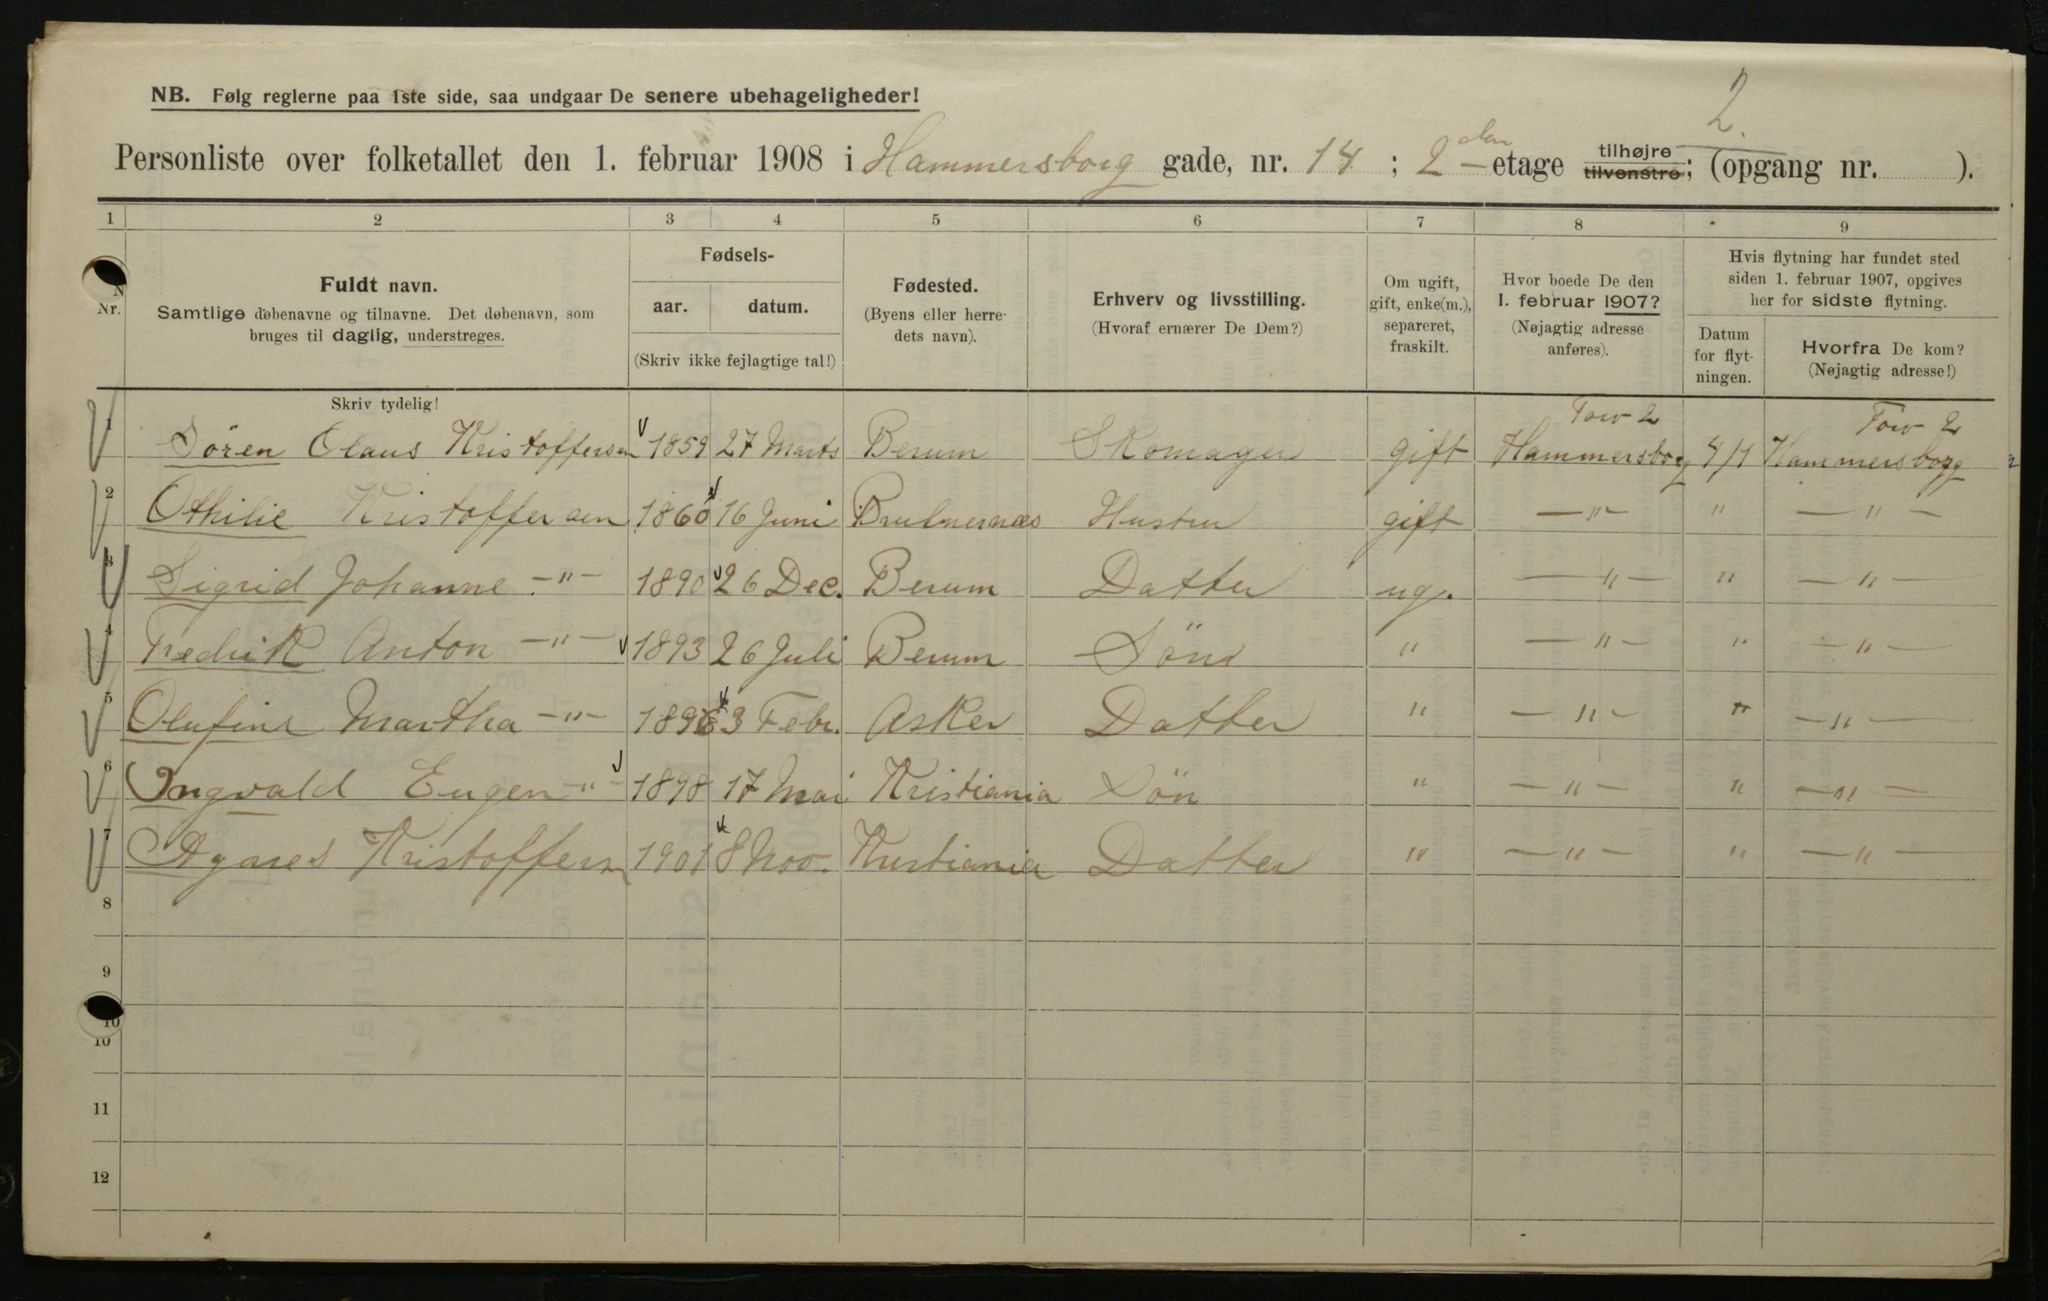 2.
NB. Følg reglerne paa 1ste side, saa undgaar De senere ubehageligheder!
Personliste over folketallet den 1. februar 1908 i Hammersborg gade, nr. 14 ; 2den etage tilhøjre tilvenstre; (opgang nr. ).
1 2 3 4 5 6 7 8 9
Nr.
Fuldt navn.
Samtlige døbenavne og tilnavne. Det døbenavn, som
bruges til daglig, understreges.
Fødsels-
aar. datum.
(Skriv ikke fejlagtige tal!)
Fødested.
(Byens eller herre-
dets navn).
Erhverv og livsstilling.
(Hvoraf ernærer De Dem?)
Om ugift,
gift, enke(m.),
separeret,
fraskilt.
Hvor boede De den
1. februar 1907?
(Nøjagtig adresse
anføres).
Hvis flytning har fundet sted
siden 1. februar 1907, opgives
her for sidste flytning.
Datum
for flyt-
ningen.
Hvorfra De kom?
(Nøjagtig adresse!)
Skriv tydelig!
1 Sören Olaus Kristoffersen 1859 27 Marts Berum Skomager gift Torv 2 Hammersborg 4/1 Torv 2 Hammersborg
2 Othilie Kristoffersen 1860 16 Juni gift —"— " —"—
3 Sigrid Johanne —"— 1890 26 Dec. Berum Datter ug. —"— " —"—
4 Fredrik Anton —"— 1893 26 Juli Berum Sön " —"— " —"—
5 Olufine Martha —"— 3 Febr. Asker Datter " —"— " —"—
6 Ingvald Eugen —"— 1898 17 Mai Kristiania Sön " —"— " —"—
7 Agnes Kristoffersen 1901 8 Nov. Kristiania Datter " —"— " —"—
8
9
10
10
11
12